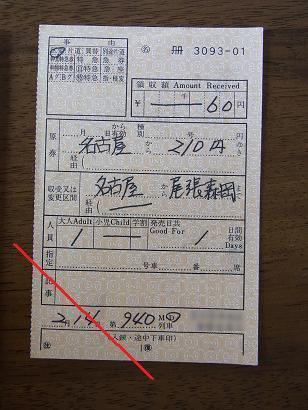 事由
㊂ 冊 3093-01
領収額 Amount Received
¥ 60円
原券
月 日から 種別 号
名古屋から 210円ゆき
経由
収受又は変更区間
名古屋から 尾張森岡まで
経由
人員
大人Adult 小児Child 学割 発売日共 Good For 日間有効 Days
1 1
指定
号車 番 席
記事
2月14日 第940 MD列車
(入鋏・途中下車印)